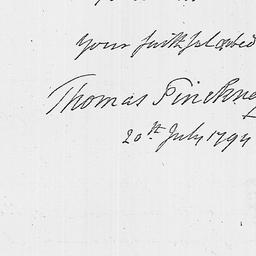 your faithful obed
Thomas Pinckne
20th July 1794